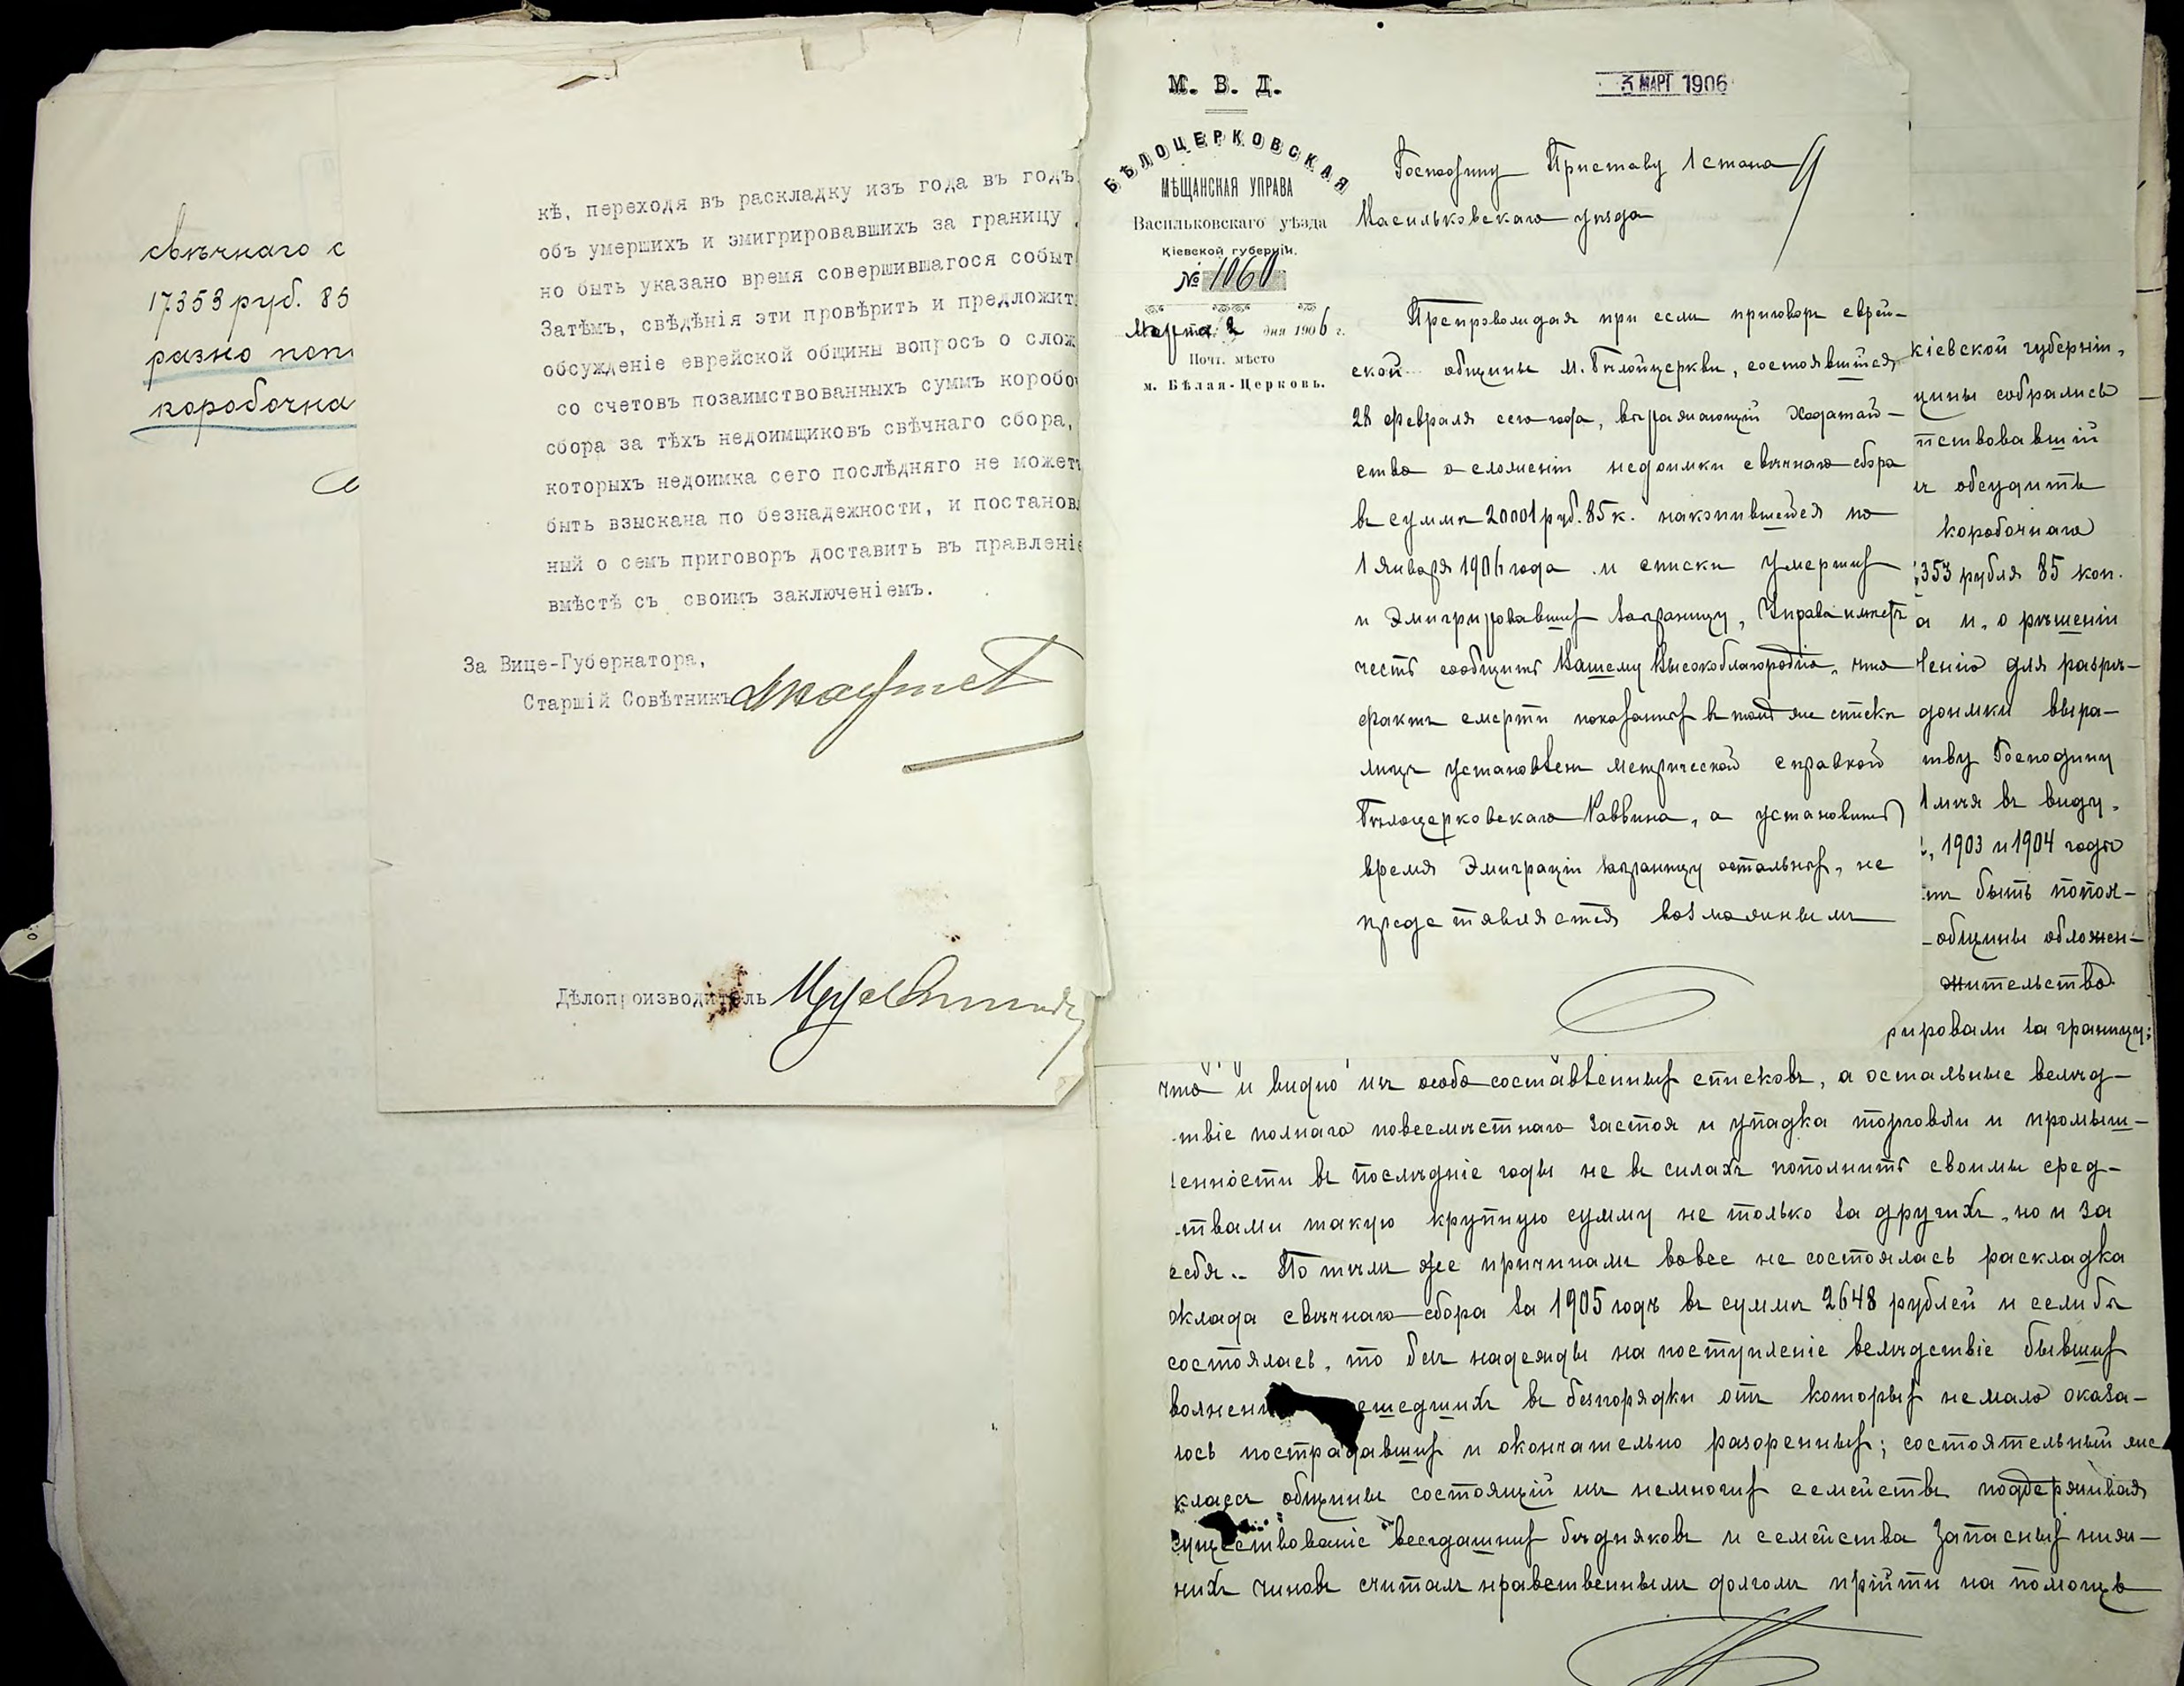 свѣчнаго с
17353 руб. 85
разно поп
коробочна
кѣ, переходя въ раскладку изъ года въ годъ
объ умершихъ и эмигрировавшихъ за границу
но быть указано время совершившагося событ
Затѣмъ, свѣдѣнія эти провѣрить и предложит
обсужденіе еврейской общины вопросъ о слож
со счетовъ позаимствованныхъ суммъ коробо
сбора за тѣхъ недоимщиковъ свѣчнаго сбора,
которыхъ недоимка сего послѣдняго не может
быть взыскана по безнадежности, и постанов
ный о семъ приговоръ доставить въ правленіе
вмѣстѣ съ своимъ заключеніемъ.
За Вице-Губернатора,
Старшій Совѣтникъ
Дѣлопроизводитель
М. В. Д.
БѢЛОЦЕРКОВСКАЯ
МѢЩАНСКАЯ УПРАВА
Васильковскаго уѣзда
Кіевской губерніи.
№ 1060
Марта 2 дня 1906 г.
Почт. мѣсто
м. Бѣлая-Церковь.
3 МАРТ 1906
Господину Приставу 1 стана
Васильковскаго уѣзда
Препровождая при семъ приговоръ еврей-
ской общины м. Бѣлойцеркви, состоявшійся
28 февраля сего года, выражающій ходатай-
ство о сложеніи недоимки свѣчнаго сбора
въ суммѣ 20001 руб. 85 к. накопившейся по
1 Января 1906 года и списки умершихъ
и Эмигрировавшихъ заграницу, Управа имѣетъ
честь сообщить Вашему Высокоблагородію, что
фактъ смерти показанныхъ въ томъ же спискѣ
лицъ установленъ метрической справкой
Бѣлоцерковскаго Раввина, а установить
время Эмиграціи заграницу остальныхъ, не
представляется возможнымъ
кіевской губерніи,
щины собрались
тствовавшій
ъ обсудить
коробочнаго
353 рубля 85 коп.
а и, о рѣшеніи
ленію для разрѣ-
доимки выра-
тву Господину
Имѣя въ виду,
, 1903 и 1904 годы
тъ быть попол-
общины обложен-
жительство
рировали за границу:
что и видно изъ особо составленныхъ списковъ, а остальные вслѣд-
ствіе полнаго повсемѣстнаго застоя и упадка торговли и промыш-
ленности въ послѣдніе годы не въ силахъ пополнить своими сред-
ствами такую крупную сумму не только за другихъ, но и за
себя.. По тѣмъ же причинамъ вовсе не состоялась раскладка
оклада свѣчнаго сбора за 1905 годъ въ суммѣ 2648 рублей и если бъ
состоялась, то безъ надежды на поступленіе вслѣдствіе бывшихъ
волнен ешедшихъ въ безпорядки отъ которыхъ не мало оказа-
лось пострадавшихъ и окончательно разоренныхъ; состоятельный же
классъ общины состоящій изъ немногихъ семействъ поддерживая
существованіе всегдашнихъ бѣдняковъ и семейства Запасныхъ ниж-
нихъ чиновъ считалъ нравственнымъ долгомъ прійти на помощь